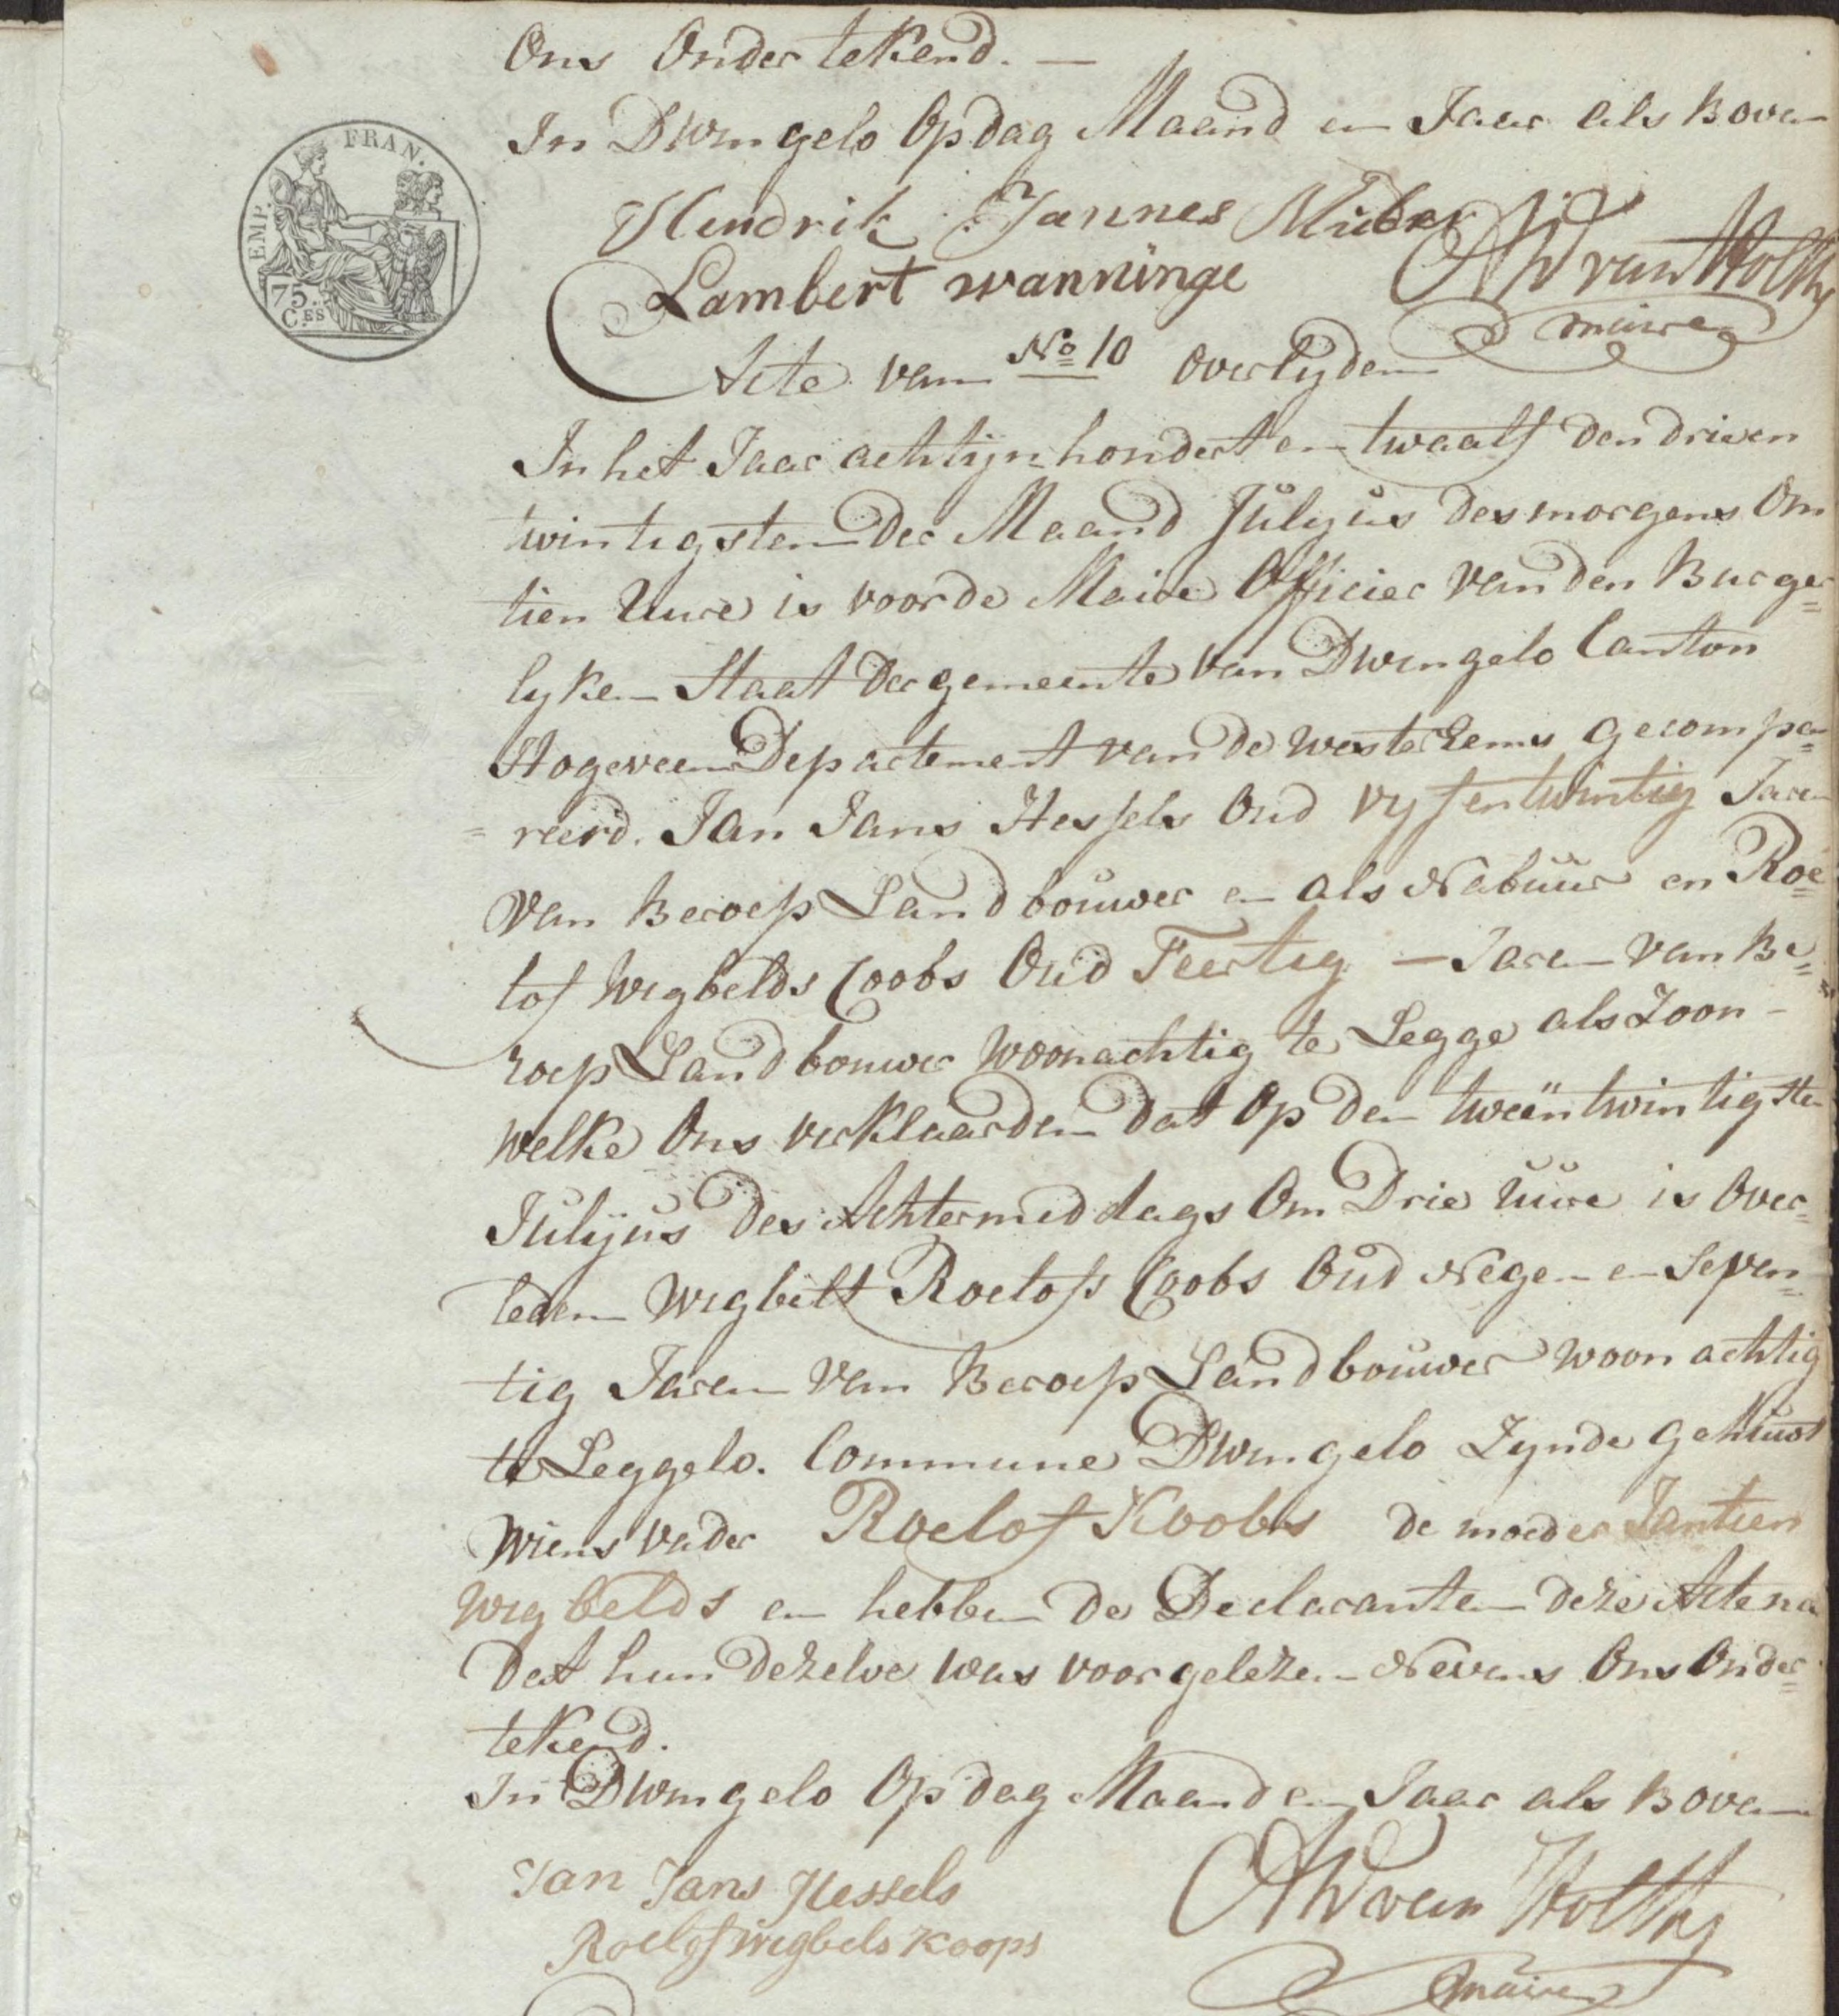 Ons Ondertekend. —
In Dwingelo Op dag Maand en Jaar als Boven
EMP. FRAN.
75. C.ES
Hendrik Jannes Mulder
Lambert wanninge
AW van Holthe
maire
Acte van No 10 Overlyden
In het Jaar achtijn hondert en twaalf den drieen
twintigsten der Maand Julyus des morgens Om
tien Uure is voor de Maire Officier van den Burger=
lyken Staat der gemeente van Dwingelo Canton
Hogeveen Departement van de wester Eems gecompa=
=reerd. Jan Jans Hessels Oud vyfentwintig Jaren
van Beroep Landbouwer en als Nabuur en Roe=
lof Wigbelds Coobs Oud Feertig — Jaren van Be=
roep Landbouwer woonachtig te Legge als Zoon -
welke Ons verklaarden dat Op den tweëntwintigsten
Julyus des Achtermiddags Om Drie Uure is Over=
leden Wigbelt Roelofs Coobs Oud Negen en Seven=
tig Jaren van Beroep Landbouwer woonachtig
te Leggelo. Commune Dwingelo Zynde gehuwt
wiens vader Roelof Koobs de moeder Jantien
Wigbelds en hebben de Declaranten deze Acte na
dat hun dezelve was voorgelezen Nevens Ons Onder=
tekend.
In Dwingelo Op dag Maand en Jaar als Boven
Jan Jans Hessels
Roelof wigbels Koops
AW van Holthe
maire